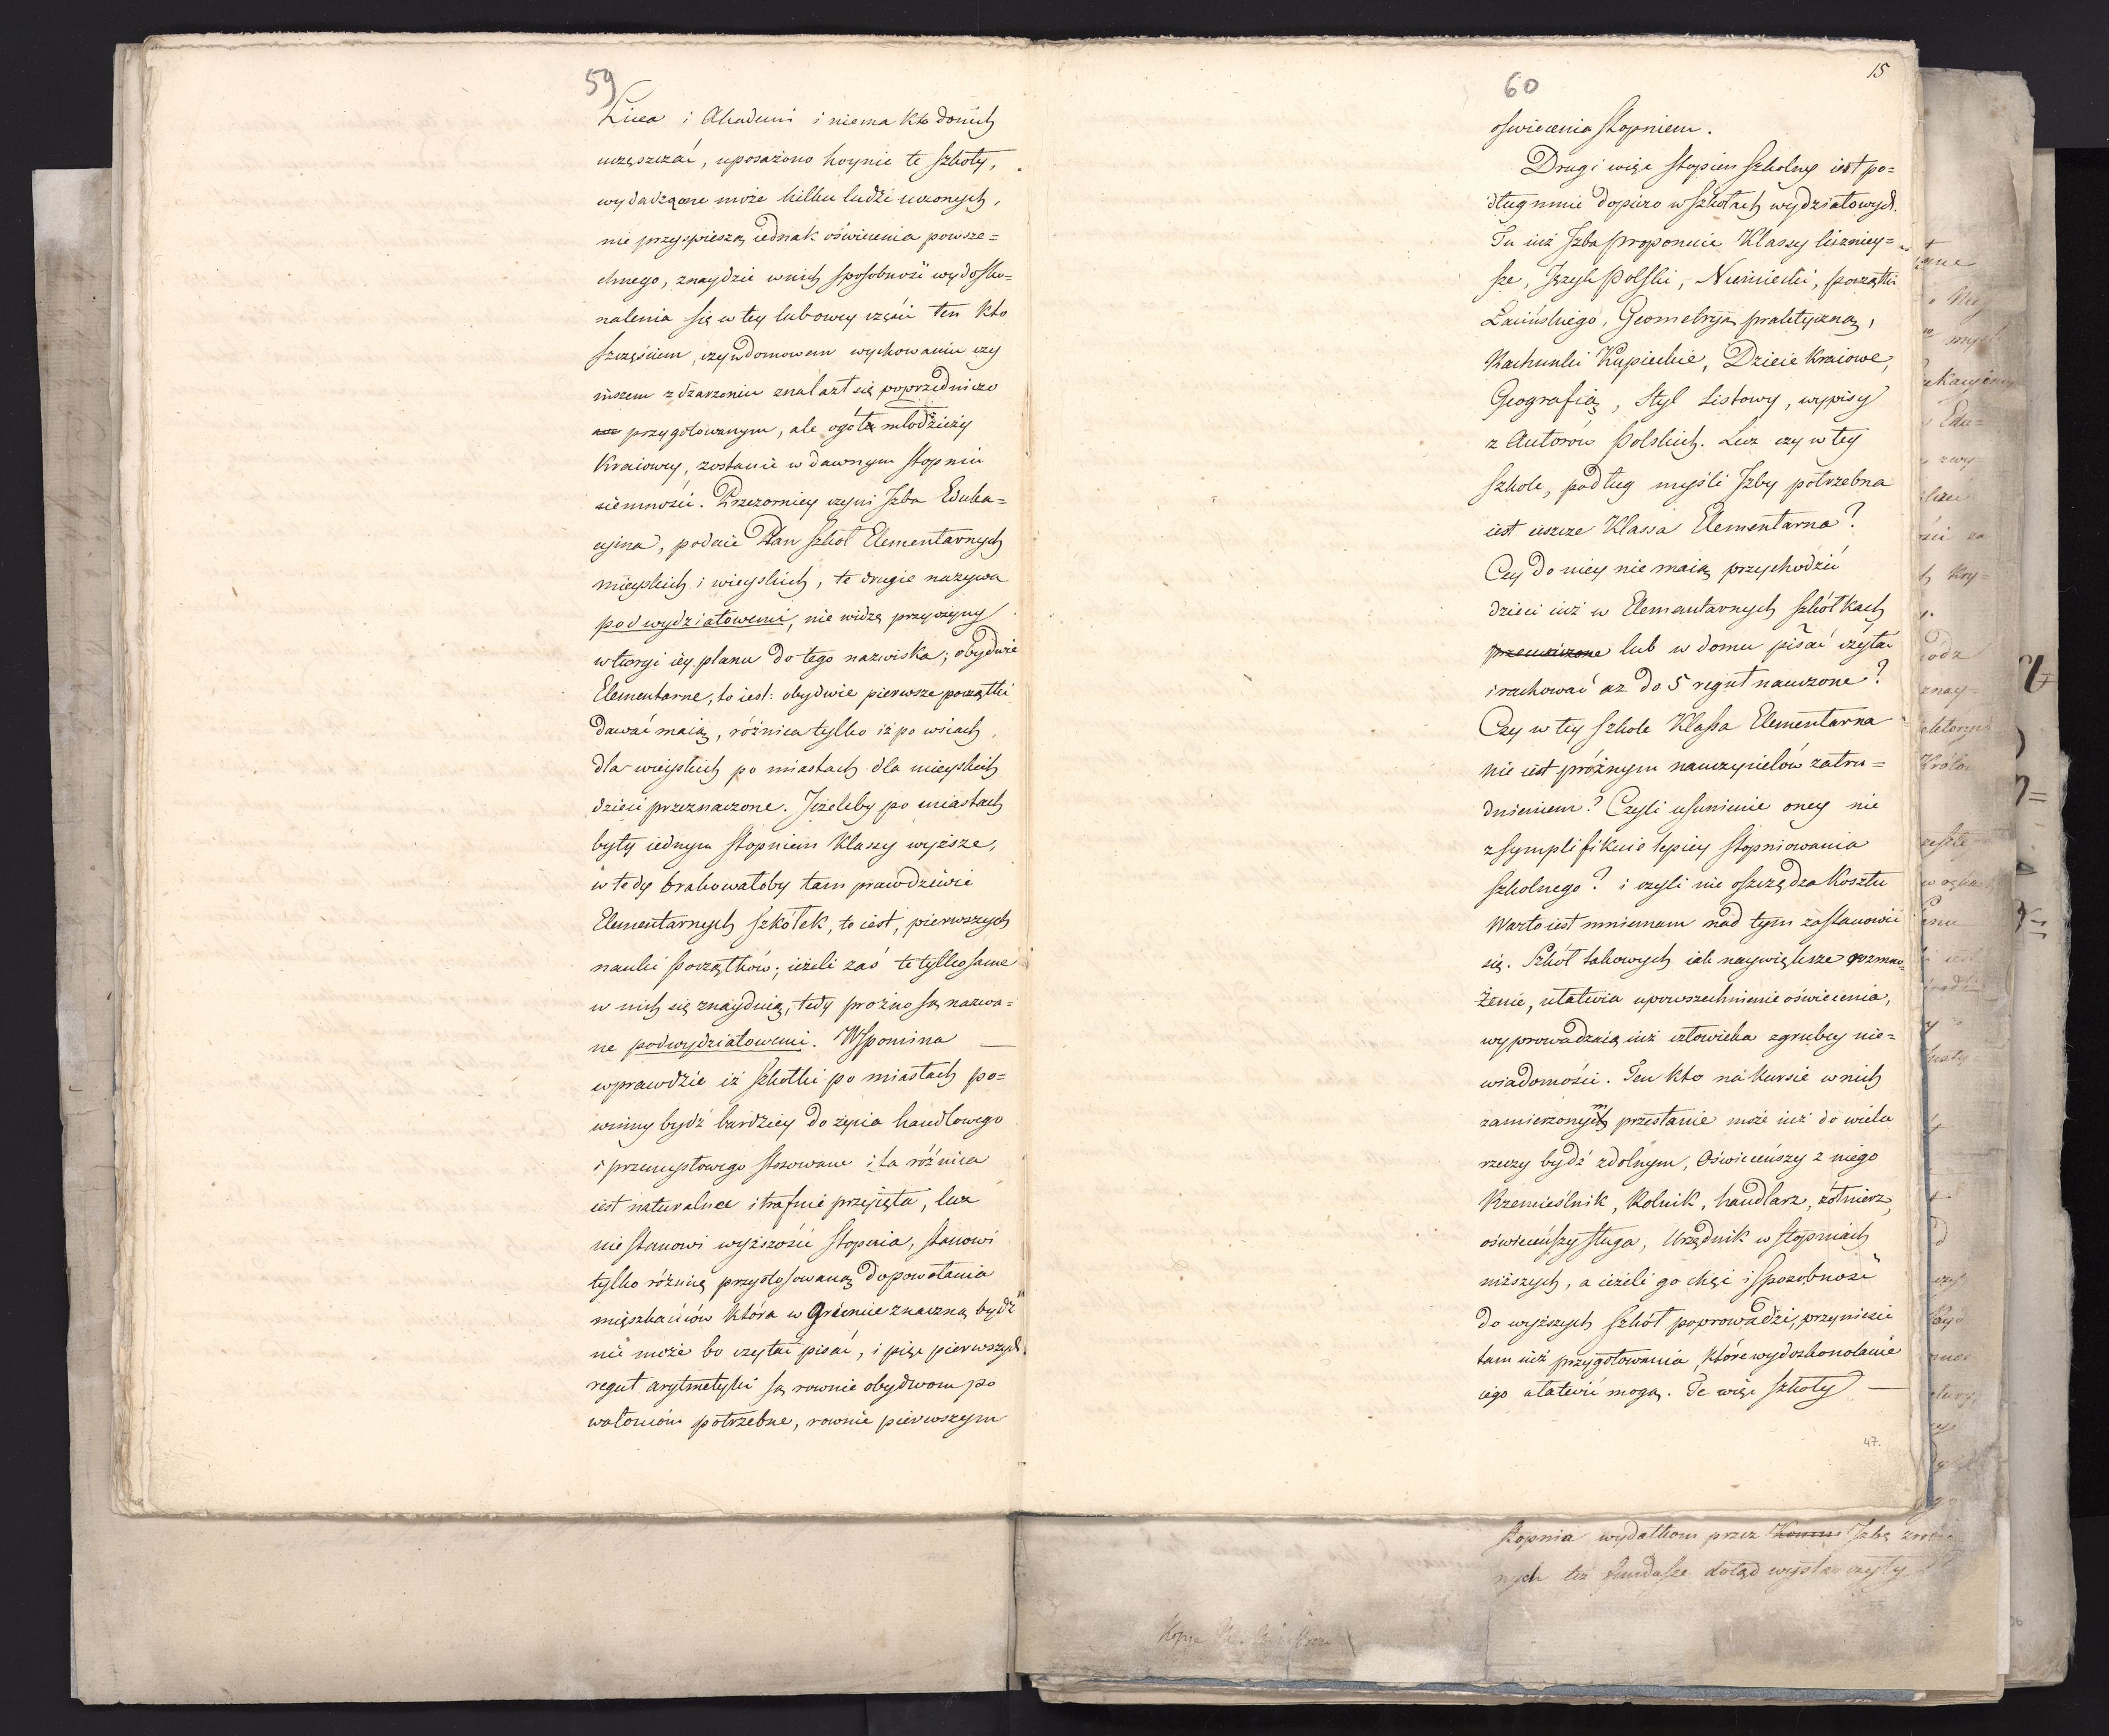 59
Licea i Akademi i niema kto do nich
uczęszczać, uposażono hoynie te szkoły,
wydadzą one może kilku ludzi uczonych,
nie przyspieszą iednak oświecenia powsze=
chnego, znaydzie w nich sposobność wydosko=
nalenia się w tey lub owey części ten kto
szczęściem, czy w domowem wychowaniu czy
inszem zdarzeniu znalazł się poprzedniczo
przygotowanym, ale ogół młodzieży
Kraiowey, zostanie w dawnym stopniu
ciemności. Przezorniey czyni Izba Eduka=
cyina, podaie Plan szkół Elementarnych
mieyskich i wieyskich, te drugie nazywa
podwydziałowemi, nie widzę przyczyny
w ciągu iey planu do tego nazwiska; obydwie
Elementarne, to iest: obydwie pierwsze początki
dawać maią, różnica tylko iż po wsiach
dla wieyskich po miastach dla mieyskich
dzieci przeznaczone. Jeżeleby po miastach
były iednym stopniem Klassy wyższe,
wtedy brakowałoby tam prawdziwie
Elementarnych szkółek, to iest, pierwszych
nauki początków; ieżeli zaś te tylko same
w nich się znayduią, tedy prożno są nazwa=
ne podwydziałowemi. Wspomina —
wprawdzie iż szkółki po miastach po=
winny bydź bardziey do życia handlowego
i przemysłowego stosowane i ta różnica
iest naturalna i trafnie przyięta, lecz
nie stanowi wyższość stopnia, stanowi
tylko różnicę przystosowaną do powołania
mięszkańców która w Gruncie znaczną bydź
nie może bo czytać pisać, i pięć pierwszych
reguł arytmetyki są rownie obydwom po
wołaniom potrzebne, rownie pierwszym
60
15
oświecenia stopniem.
Drugi więc stopien szkolny iest po=
dług mnie dopiero w szkołach wydziałowych.
Tu iuż Izba proponuie Klassy licznicy=
sze, Język Polski, Niemiecki, początki
Łacińskiego, Geometryją praktyczną,
Rachunki Kupieckie, Dzieie Kraiowe,
Geografią, Styl Listowy, wypisy
z Autorów Polskich. Lecz czy w tey
szkole, podług myśli Izby potrzebna
iest ieszcze Klassa Elementarna?
Czy do niey nie maią przychodzić
dzieci iuż w Elementarnych szkółkach
przeuczone lub w domu pisać czytać
i rachować aż do 5 reguł nauczone?
Czy w tey szkole Klassa Elementarna
nie iest próżnym nauczycielów zatru=
dnieniem? Czyli usunienie oney nie
zsymplifikuie lepiey stopniowania
szkolnego? i czyli nie oszczędza Kosztu
Warto iest mniemam nad tym zastanowić
się. Szkół takowych iak naywiększe rozmno=
żenie, ułatwia upowszechnienie oświecenia,
wyprowadzaią iuż człowieka z grubey nie=
wiadomości. Ten kto na kursie w nich
zamierzonym przestanie może iuż do wielu
rzeczy bydź zdolnym, Oświeceńszy z niego
Rzemieślnik, Rolnik, handlarz, żołnierz,
oświeceńszy sługa, Urzędnik w stopniach
niższych, a ieżeli go chęć i sposobność
do wyższych szkół poprowadzi, przyniesie
tam iuż przygotowania, które wydoskonolanie
iego ułatwić mogą. Te więc szkoły —
47.
stopnia wydatkom przez Izbę
nych też fundusze dotąd wystarczyły